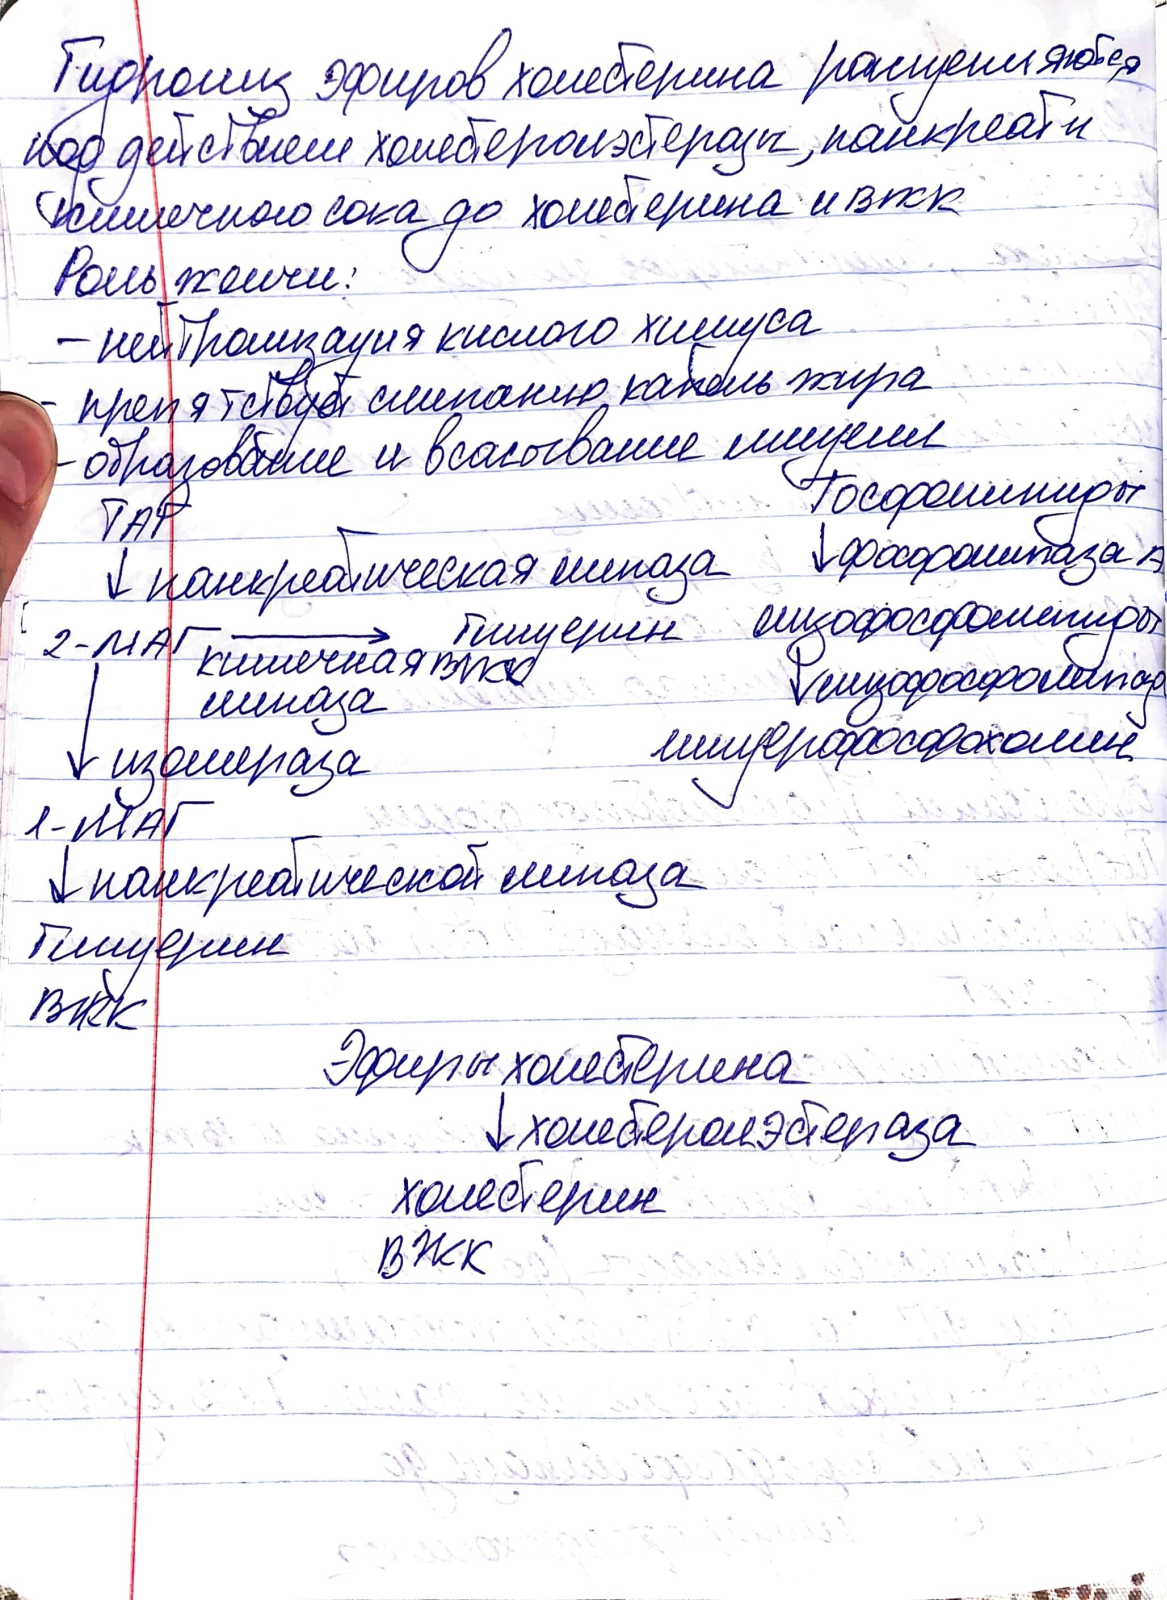 Гидролиз эфиров холестерина расщепляются
под действием холестеролэстеразы, панкреат и
кишечного сока до холестерина и ВЖК
Роль желчи:
- нейтрализация кислого химуса
- препятствует слипанию капель жира
- образование и всасывание мицелл
ТАГ
↓ панкреатическая липаза
2-МАГ → Глицерин
кишечная ВЖК
липаза
↓ изомераза
1-МАГ
↓ панкреатической липаза
Глицерин
ВЖК
Фосфолипиды
↓ фосфолипаза А
лизофосфолипиды
↓ лизофосфолипаза
глицерофосфохолин
Эфиры холестерина
↓ холестеролэстераза
холестерин
ВЖК